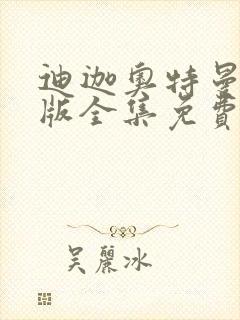 迪迦奥特曼
版全集免費
吴麗冰